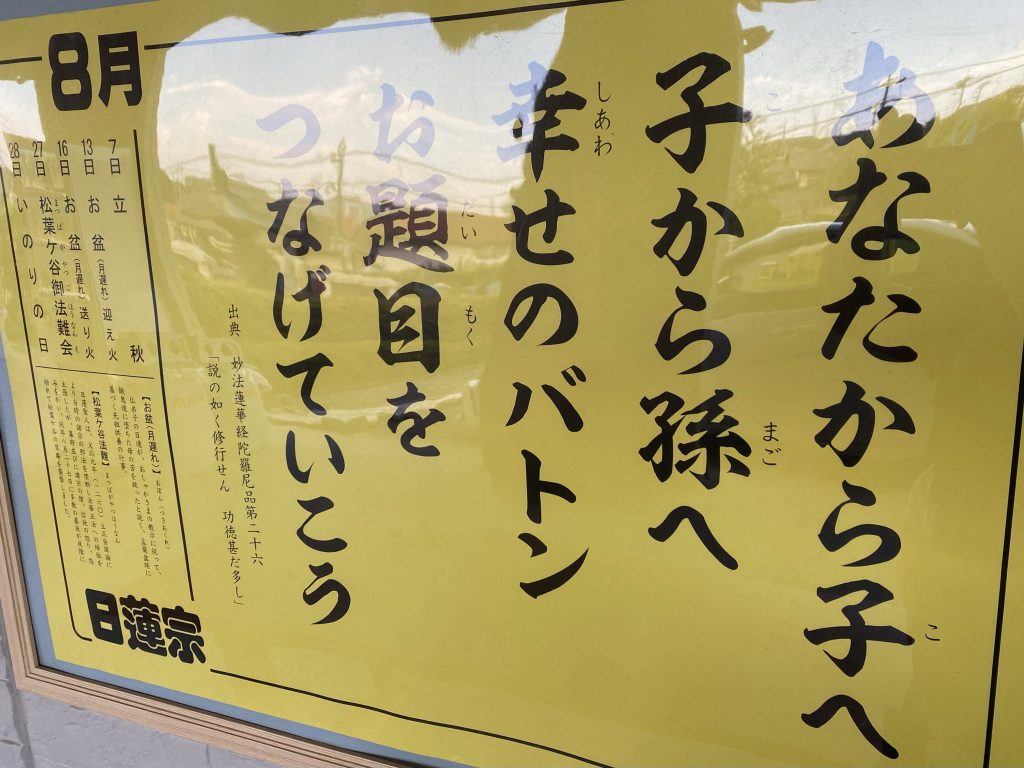 あなたから子へ
子から孫へ
幸せのバトン
お題目を
つなげていこう
出典 妙法蓮華経陀羅尼品第二十六
「説の如く修行せん 功徳甚だ多し」
8月
7日 立秋
13日 お盆(月遅れ)迎え火
16日 お盆(月遅れ)送り火
27日 松葉ケ谷御法難会
28日 いのりの日
【お盆(月遅れ)】おぼん(つきおくれ)
【松葉ケ谷法難】まつばがやつほうなん
日蓮宗